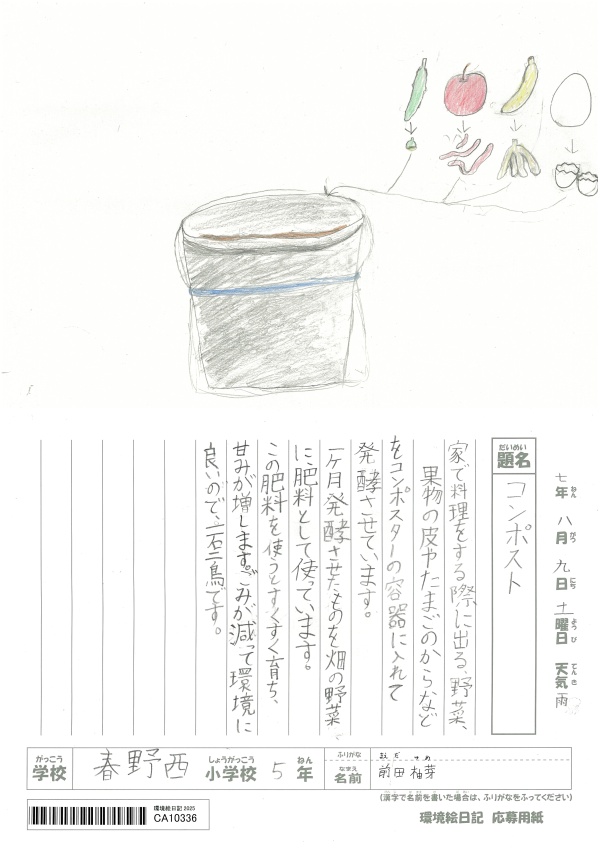 七年 八月 九日 土曜日 天気 雨
ねん がつ にち ようび てんき
だいめい
題名 コンポスト
家で料理をする際に出る、野菜、
果物の皮やたまごのからなど
をコンポスターの容器に入れて
発酵させています。
一ヶ月発酵させたものを畑の野菜
に肥料として使っています。
この肥料を使うとすくすく育ち、
甘みが増します。ごみが減って環境に
良いので、一石二鳥です。
がっこう しょうがっこう ねん
学校 春野西 小学校 5 年
ふりがな
なまえ
名前 前田 柚芽
(漢字で名前を書いた場合は、ふりがなをふってください)
環境絵日記 2025
CA10336
環境絵日記 応募用紙